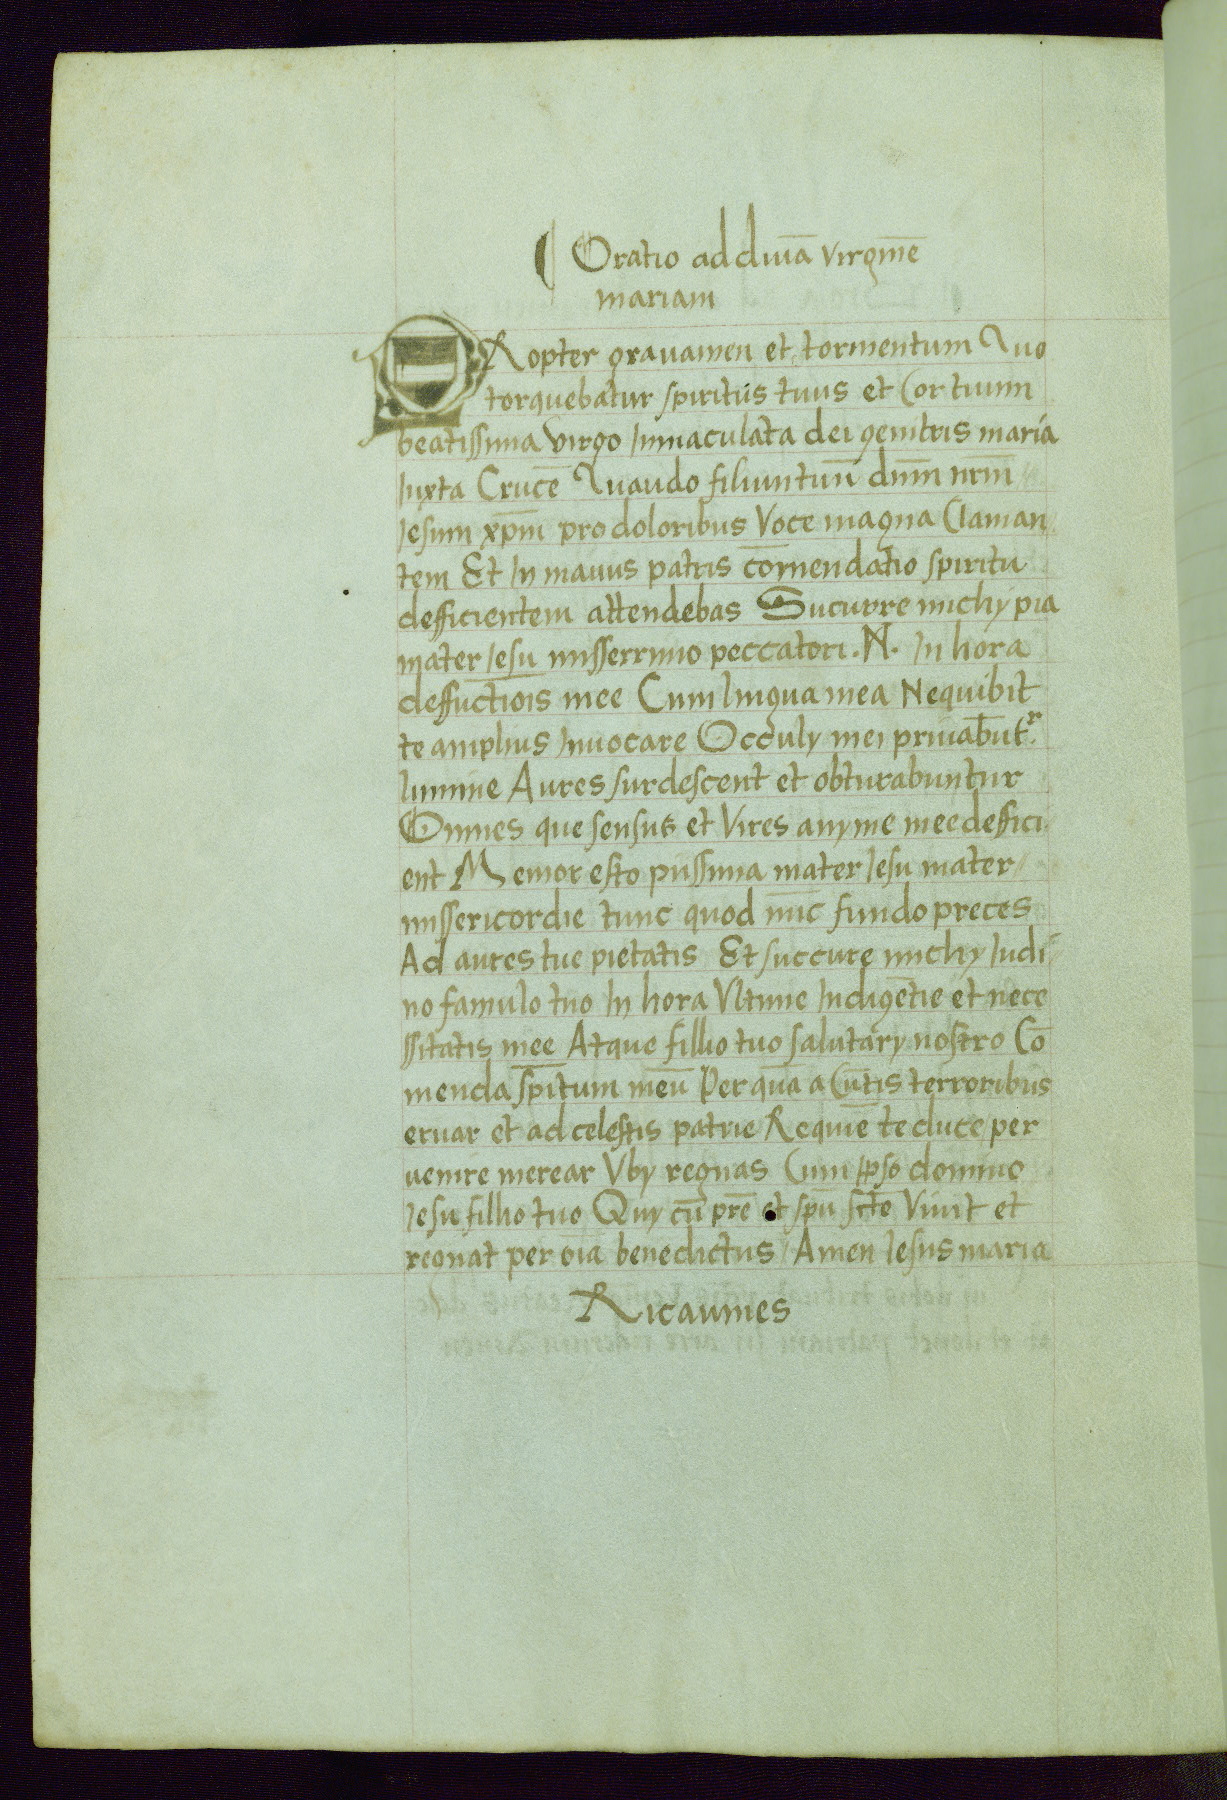 ¶ Oratio ad diuā virginē
mariam
PRopter grauamen et tormentum Quo
torquebatur spiritus tuus et Cor tuum
beatissima virgo Inmaculata dei genitris maria
Iuxta Crucē Quando filium tuū dn̄m nr̄m
Iesum xp̄m pro doloribus Voce magna Claman
tem Et In manus patris cōmendatio spiritu
defficientem attendebas Sucurre michy pia
mater Iesu misserrimo peccatori .N. In hora
deffuctiois mee Cum lingua mea Nequibit
te amplius Inuocare Occuly mei priuab̄utʳ
lumine Aures surdescent et obturabuntur
Omnes que sensus et Vires anyme mee deffici
ent Memor esto piissima mater Iesu mater
missericordie tunc quod nūc fundo preces
Ad aures tue pietatis Et succure michy Indi
no famulo tuo In hora Vltime Indigētie et nece
ssitatis mee Atque filio tuo salutary nostro Cō
menda sp̄itum meū Per quā a Cūtis terroribus
eruar et ad celestis patrie Requiē te duce per
uenire merear Vby regnas Cum Ipso domino
Iesu filio tuo Quy cū prē et spū scte Viuit et
regnat per oīa benedictus Amen Iesus maria